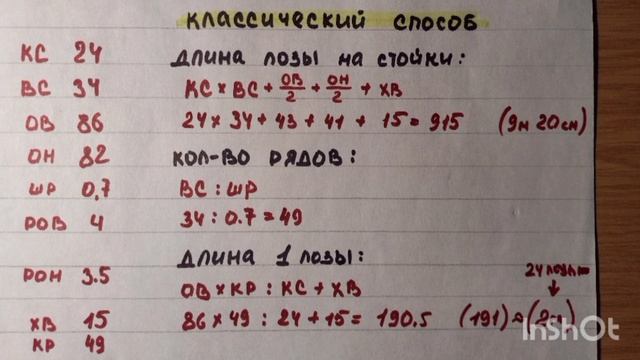 КЛАССИЧЕСКИЙ СПОСОБ
КС 24
ВС 34
ОВ 86
ОН 82
ШР 0,7
РОВ 4
РОН 3.5
ХВ 15
КР 49
ДЛИНА ЛОЗЫ НА СТОЙКИ:
КС × ВС + ОВ/2 + ОН/2 + ХВ
24 × 34 + 43 + 41 + 15 = 915 (9м 20см)
КОЛ-ВО РЯДОВ:
ВС : ШР
34 : 0.7 = 49
ДЛИНА 1 ЛОЗЫ:
ОВ × КР : КС + ХВ
24 лозы
↓
86 × 49 : 24 + 15 = 190.5 (191)
InShot